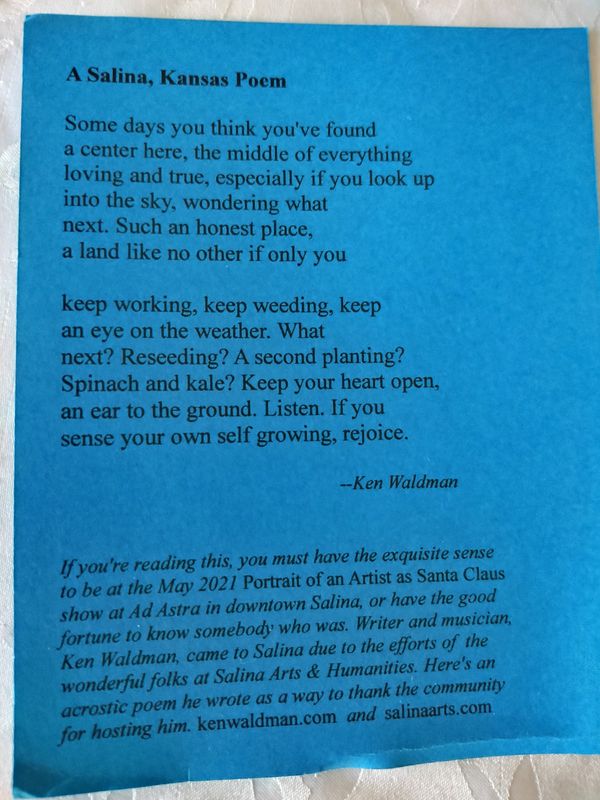 A Salina, Kansas Poem
Some days you think you've found
a center here, the middle of everything
loving and true, especially if you look up
into the sky, wondering what
next. Such an honest place,
a land like no other if only you
keep working, keep weeding, keep
an eye on the weather. What
next? Reseeding? A second planting?
Spinach and kale? Keep your heart open,
an ear to the ground. Listen. If you
sense your own self growing, rejoice.
--Ken Waldman
If you're reading this, you must have the exquisite sense
to be at the May 2021 Portrait of an Artist as Santa Claus
show at Ad Astra in downtown Salina, or have the good
fortune to know somebody who was. Writer and musician,
Ken Waldman, came to Salina due to the efforts of the
wonderful folks at Salina Arts & Humanities. Here's an
acrostic poem he wrote as a way to thank the community
for hosting him. kenwaldman.com and salinaarts.com